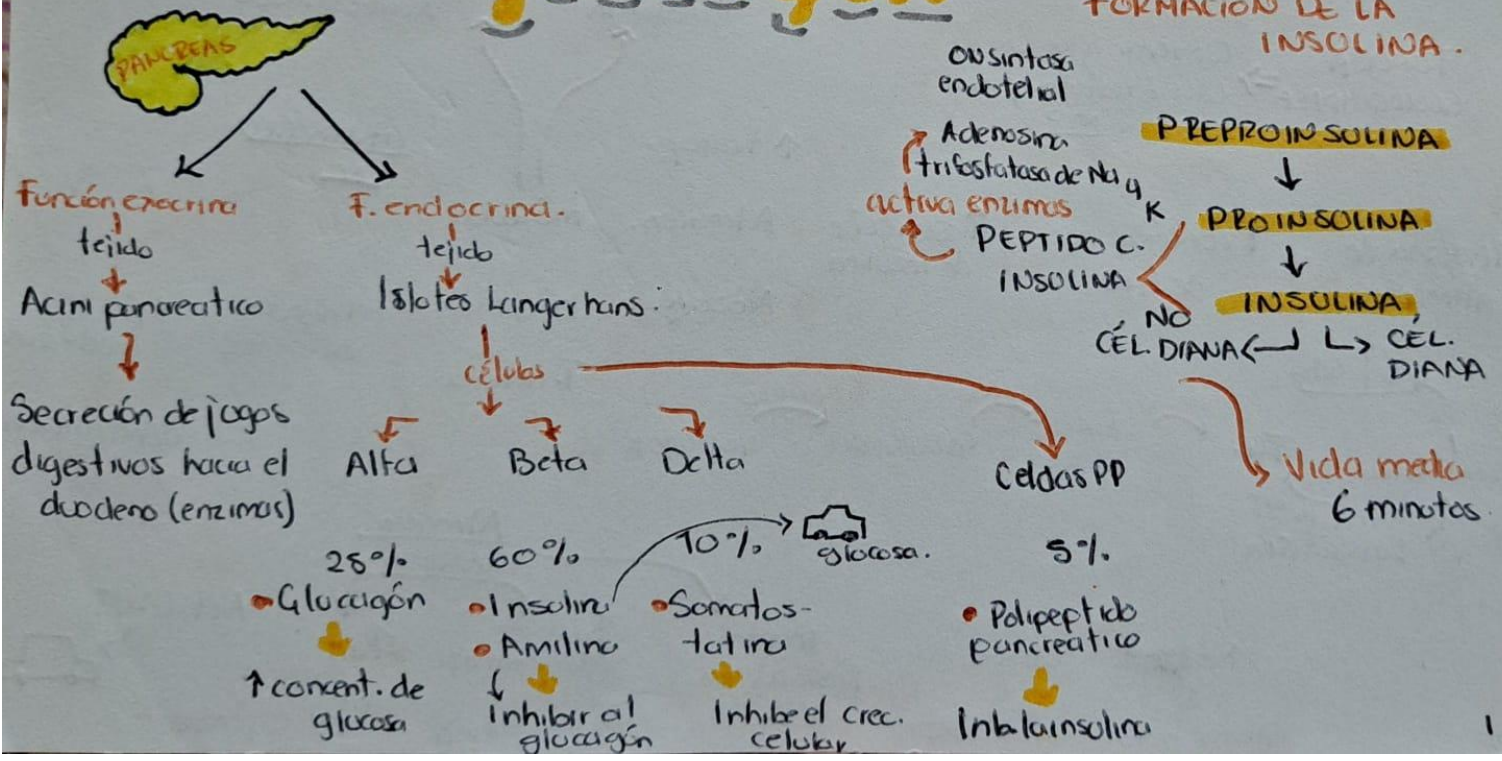 PANCREAS
FORMACIÓN DE LA
INSOLINA.
Función exocrina
tejido
Acini pancreatico
Secreción de jugos
digestivos hacia el
duodeno (enzimas)
F. endocrina.
tejido
Islotes Langerhans.
células
Alfa
Beta
Delta
Celdas PP
25%
• Glucagón
↑ concent. de
glucosa
60%
• Insulina
• Amilina
inhibir al
glucagón
10%
glucosa.
• Somatos-
tatina
Inhibe el crec.
celular
5%
• Polipeptido
pancreatico
Inh la insulina
ON sintasa
endotelial
Adenosina
trifosfatasa de Na y
K
activa enzimas
PEPTIDO C.
INSULINA
PREPROINSULINA
↓
PROINSULINA
↓
INSULINA
NO
CÉL. DIANA
CÉL.
DIANA
Vida media
6 minutos.
1